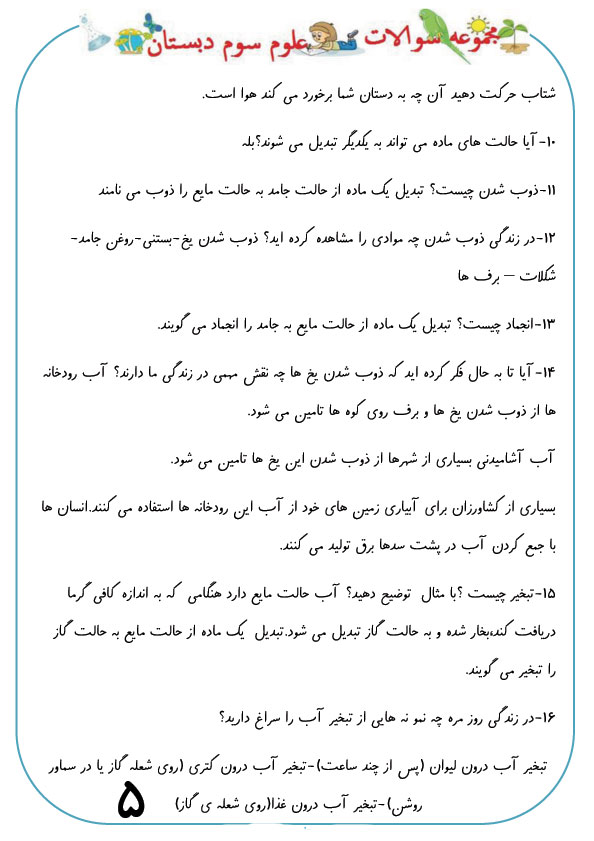 مجموعه سوالات علوم سوم دبستان
شتاب حرکت دهید آن چه به دستان شما برخورد می کند هوا است.
۱۰- آیا حالت های ماده می تواند به یکدیگر تبدیل می شوند؟بله
۱۱-ذوب شدن چیست؟ تبدیل یک ماده از حالت جامد به حالت مایع را ذوب می نامند
۱۲-در زندگی ذوب شدن چه موادی را مشاهده کرده اید؟ ذوب شدن یخ-بستنی-روغن جامد-
شکلات – برف ها
۱۳-انجماد چیست؟ تبدیل یک ماده از حالت مایع به جامد را انجماد می گویند.
۱۴- آیا تا به حال فکر کرده اید که ذوب شدن یخ ها چه نقش مهمی در زندگی ما دارند؟ آب رودخانه
ها از ذوب شدن یخ ها و برف روی کوه ها تامین می شود.
آب آشامیدنی بسیاری از شهرها از ذوب شدن این یخ ها تامین می شود.
بسیاری از کشاورزان برای آبیاری زمین های خود از آب این رودخانه ها استفاده می کنند.انسان ها
با جمع کردن آب در پشت سدها برق تولید می کنند.
۱۵-تبخیر چیست ؟با مثال توضیح دهید؟ آب حالت مایع دارد هنگامی که به اندازه کافی گرما
دریافت کند،بخار شده و به حالت گاز تبدیل می شود.تبدیل یک ماده از حالت مایع به حالت گاز
را تبخیر می گویند.
۱۶-در زندگی روز مره چه نمو نه هایی از تبخیر آب را سراغ دارید؟
تبخیر آب درون لیوان (پس از چند ساعت)-تبخیر آب درون کتری (روی شعله گاز یا در سماور
روشن)-تبخیر آب درون غذا(روی شعله ی گاز)
۵